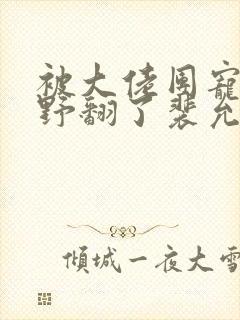 被大佬团宠
野翻了裴允
倾城一夜大雪